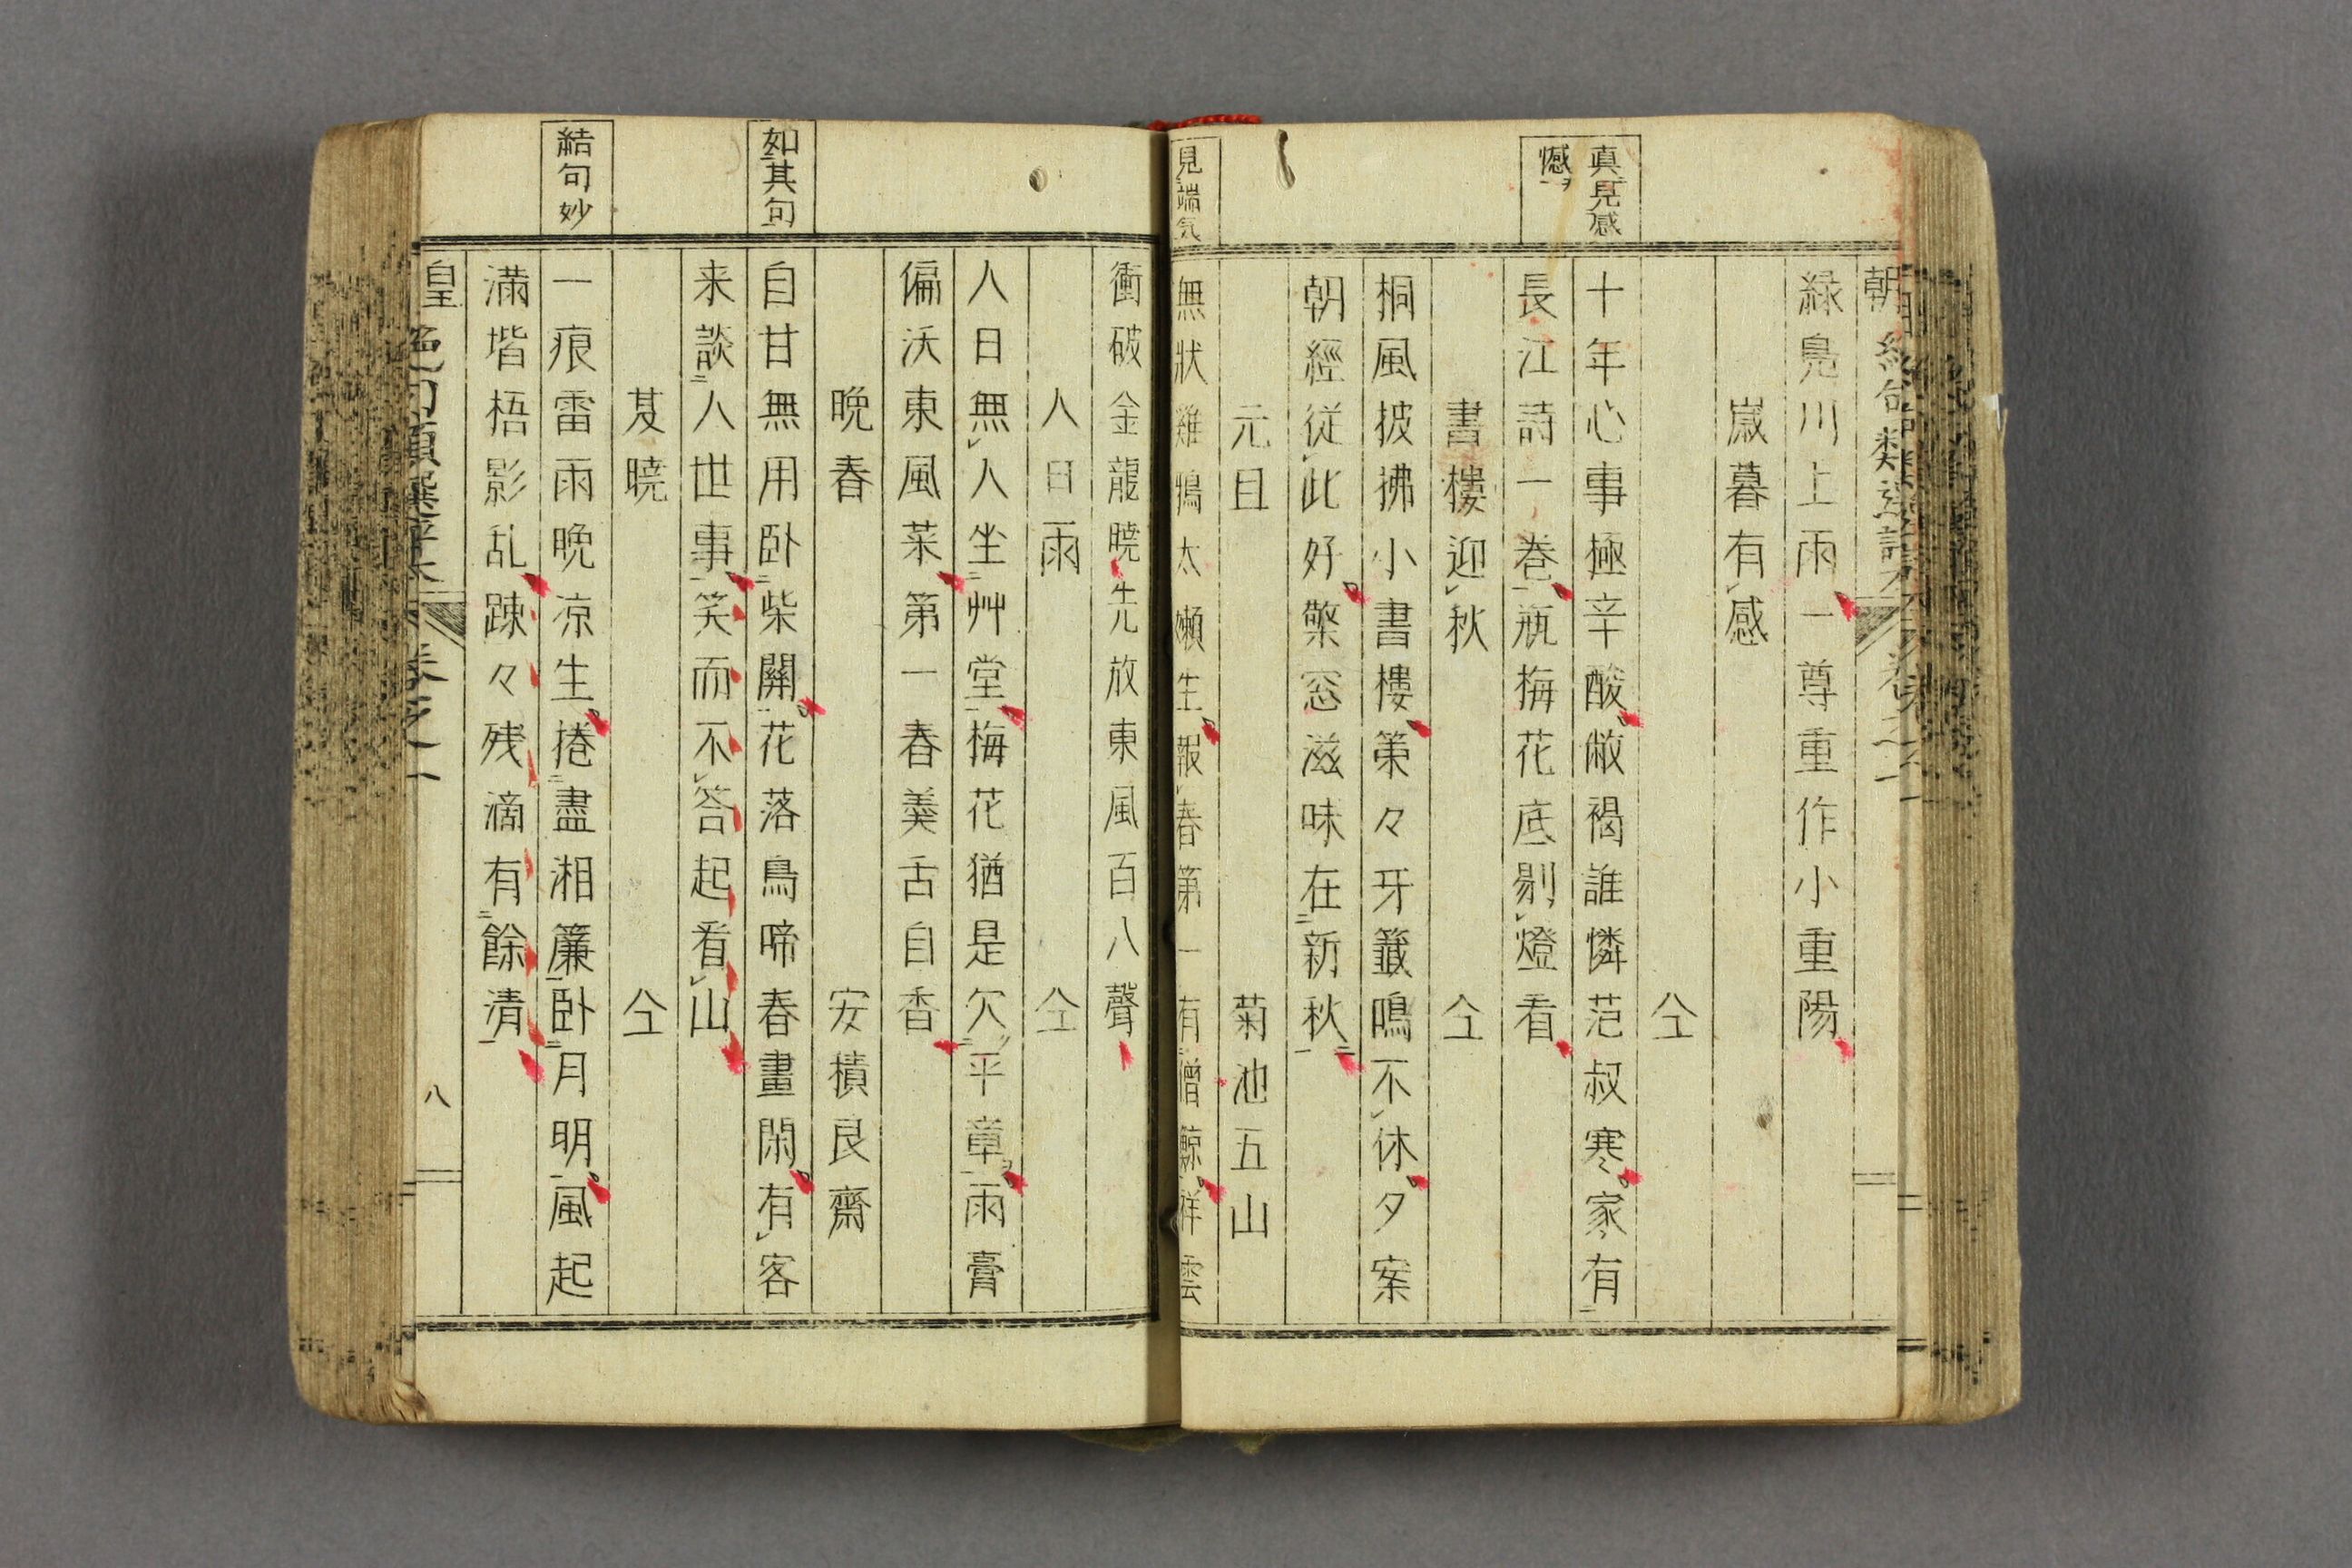 緑鳧川上雨一尊重作小重陽
歳暮有感
仝
真見感
憾
十年心事極辛酸敝褐誰憐范叔寒家有
長江詩一巻瓶梅花底剔燈看
書樓迎秋
仝
桐風披拂小書樓策々牙籤鳴不休夕案
朝經従此好檠窓滋味在新秋
元旦
菊池五山
見端気
無状雞鴉太嬾生報春第一有僧鯨祥雲
衝破金龍暁先放東風百八聲
人日雨
仝
人日無人坐艸堂梅花猶是欠平章雨膏
偏沃東風菜第一春羹舌自香
晩春
安積艮齋
如其句
自甘無用卧柴關花落鳥啼春晝閑有客
来談人世事笑而不答起看山
夏暁
仝
結句妙
一痕雷雨晩凉生捲盡湘簾卧月明風起
満堦梧影乱踈々残滴有餘清
八